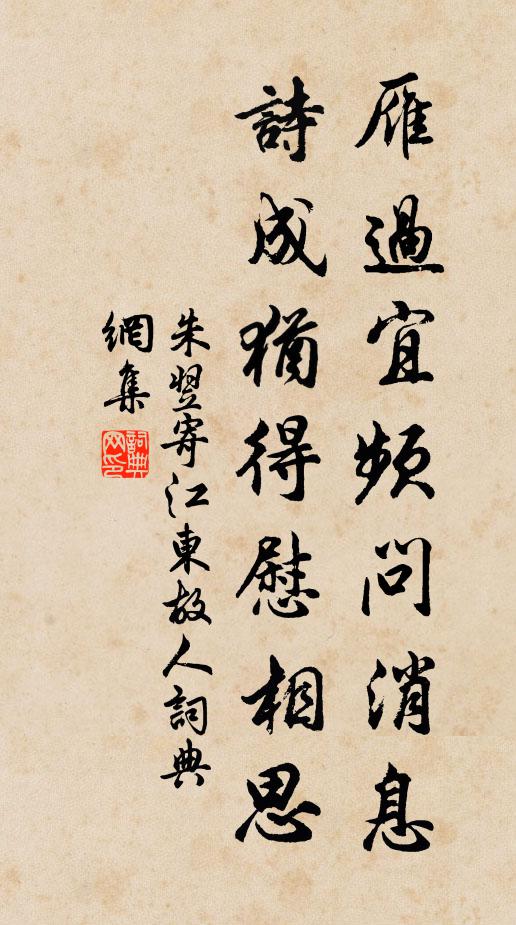 雁過宜頻問消息
詩成猶得慰相思
朱翌寄江東故人詞典
網集
詞典
网印